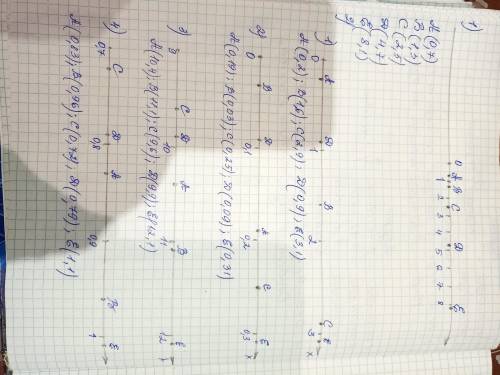 1)
0 A B C D E
1 2 3 4 5 6 7 8
A(0,7)
B(1,3)
C(2,7)
D(4,7)
E(8,1)
2)
1)
A D B C E
0 1 2 3 x
A(0,2); B(1,6); C(2,9); D(0,9); E(3,1)
2)
B D A C E
0 0,1 0,2 0,3 x
A(0,19); B(0,03); D(0,09); E(0,31)
3)
C D A B E
9 10 11 12
B(11,1); C(9,5); D(9,9); E(12,1)
4)
C D A B E
0,7 0,8 0,9 1
A(0,83); B(0,96); C(0,72); D(0,79); E(1,1)